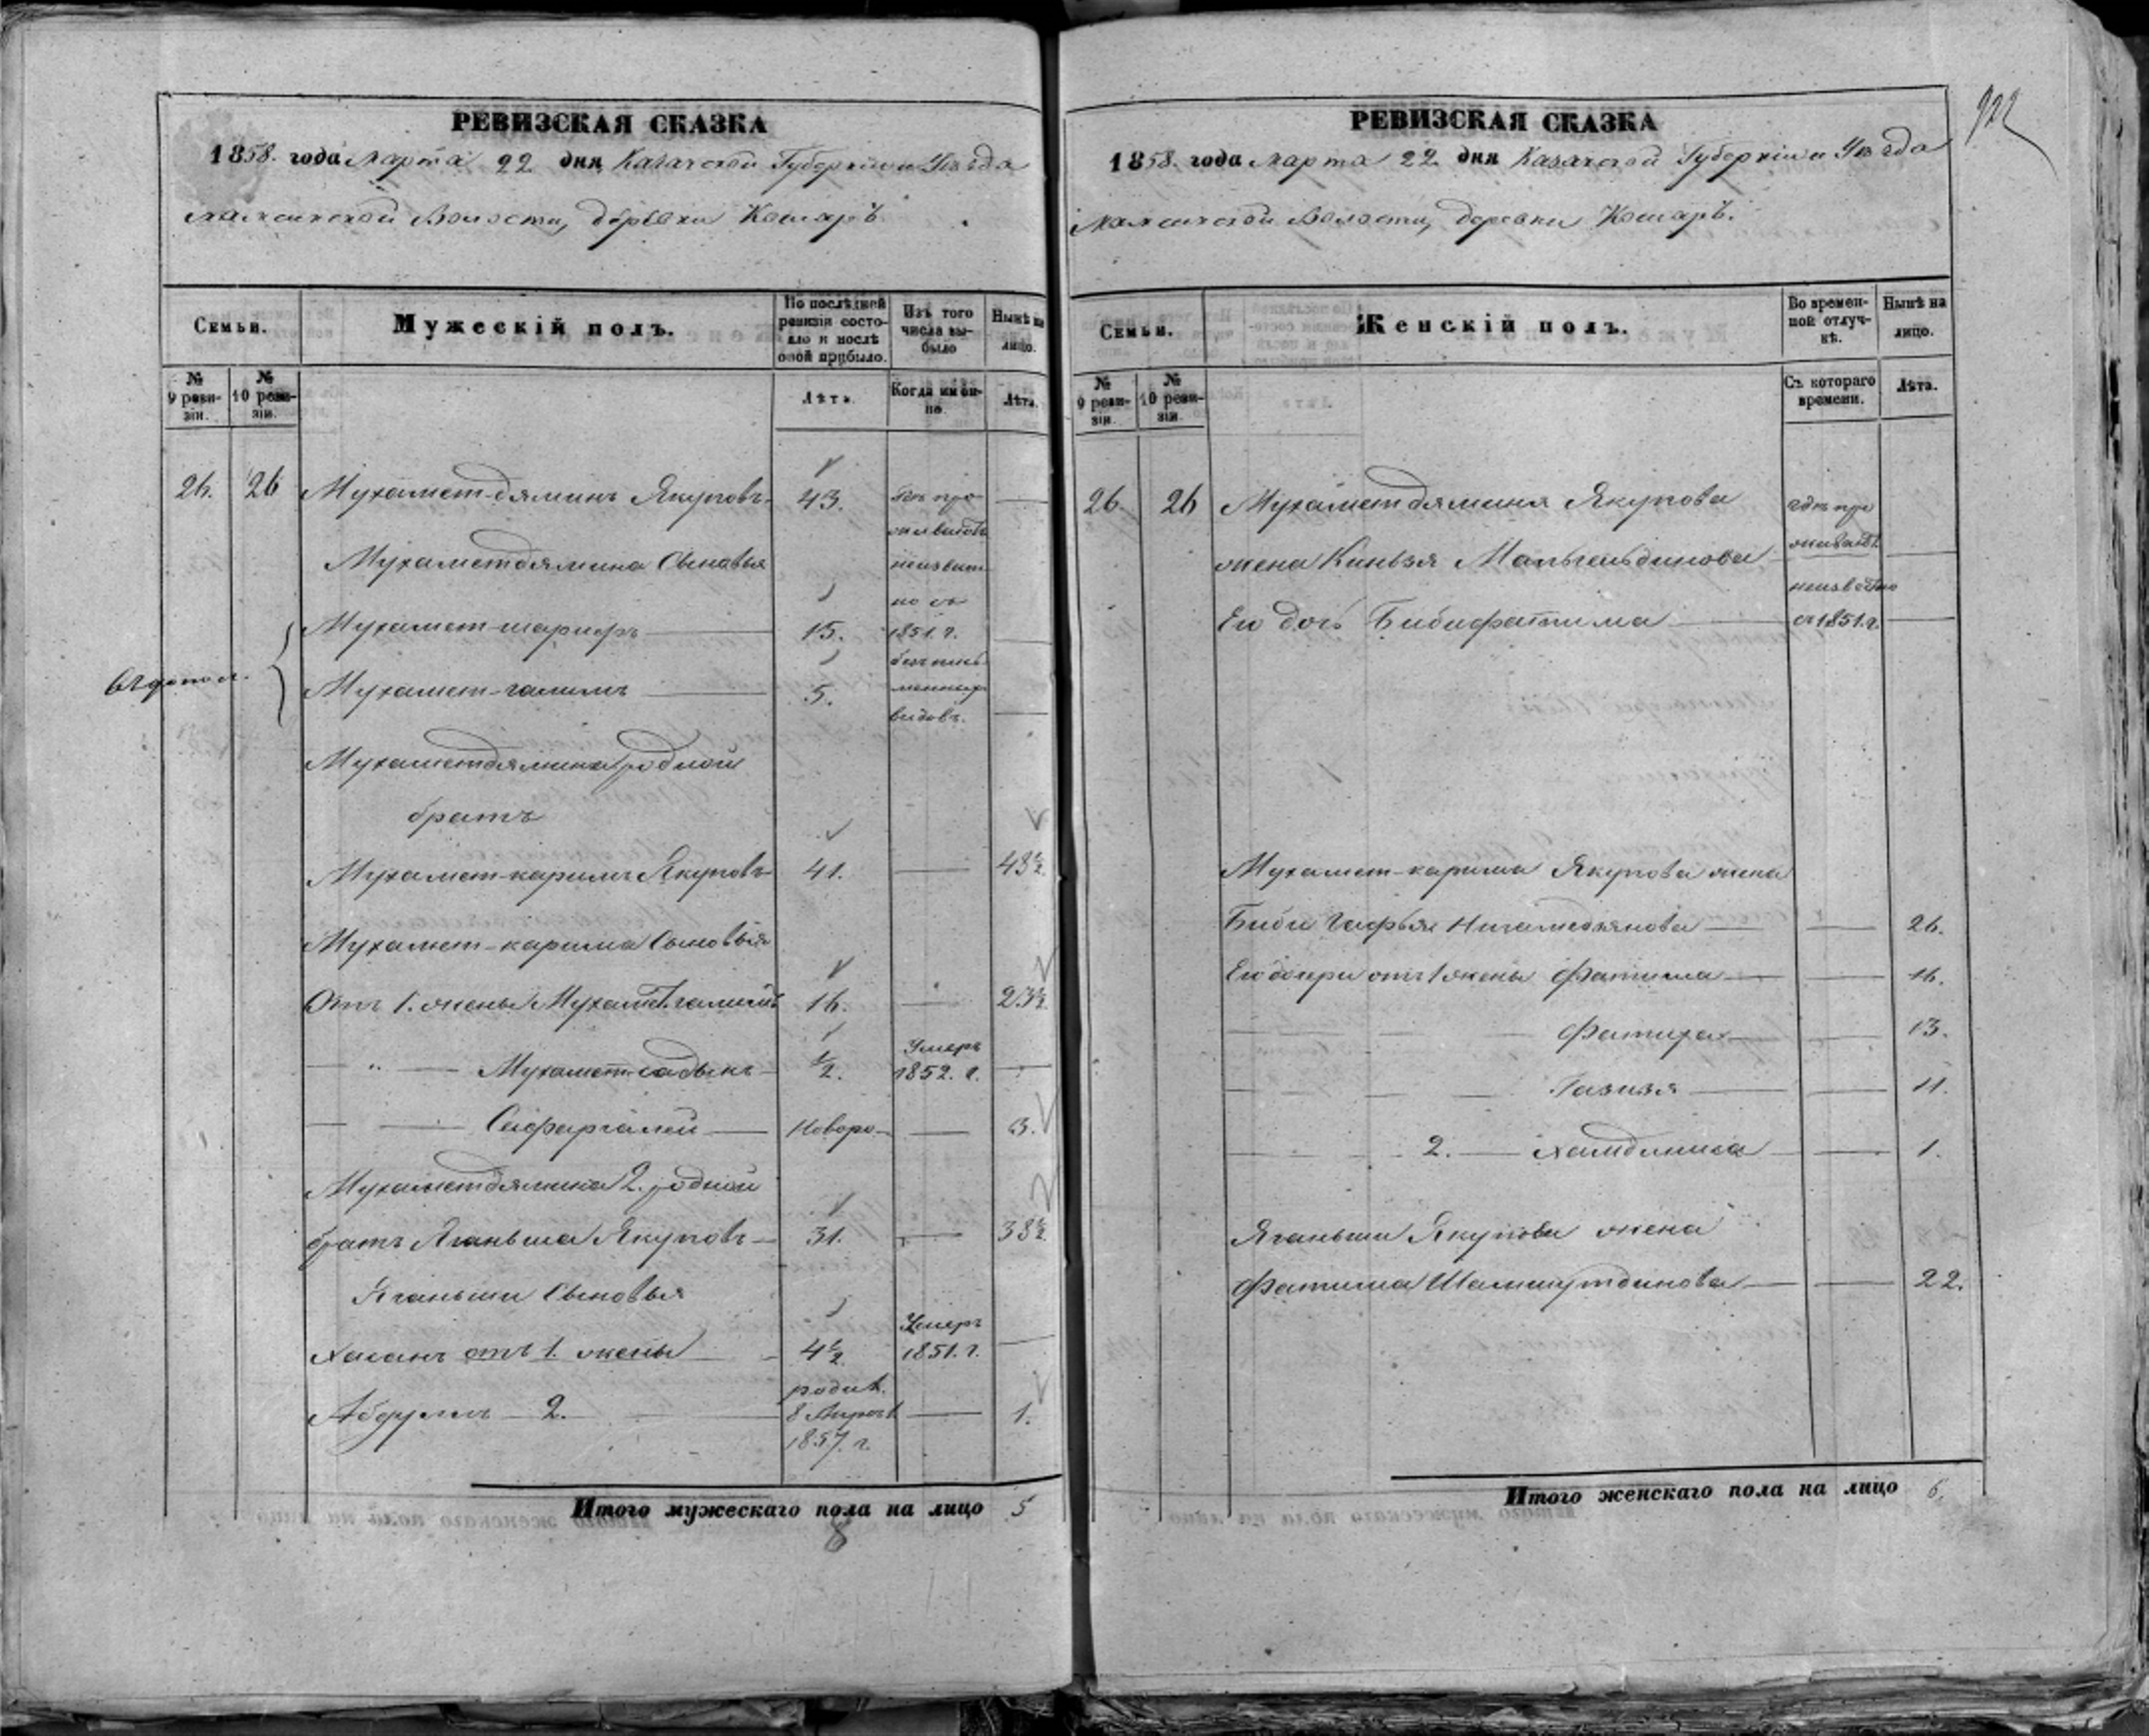 РЕВИЗСКАЯ СКАЗКА
1858. года Марта 22 дня, Казанской Губерніи и Уѣзда
волости, деревни Кошаръ
Семьи.
Мужескій полъ.
По послѣдней ревизіи состояло и послѣ оной прибыло.
Изъ того числа выбыло
Нынѣ на лицо.
№ 9 ревизіи.
№ 10 ревизіи.
Лѣта.
Когда именно.
Лѣта.
26. 26 Мухамет-дяминъ Якуповъ. 43. Гдѣ проживаютъ
Мухаметдямина Сыновья неизвѣст
но съ
Мухамет-шарифъ 15. 1851. г.
безъ пись
Мухамет-галимъ 5. менныхъ
видовъ.
Мухаметдямина родной
братъ
Мухамет-каримъ Якуповъ 41. 48½.
Мухамет-карима Сыновья
Отъ 1. жены Мухамет.галимъ 16. 23½.
Умеръ
" Мухамет-садыкъ ½. 1852. г.
Сафаргалей Новоро 3.
Мухаметдямина 2. родной
братъ Яганьша Якуповъ 31. 38½.
Яганьши Сыновья
Умеръ
Хасанъ отъ 1. жены 4½ 1851. г.
родил.
Абдулъ 2. 8 1.
1857. г.
Итого мужескаго пола на лицо 5
8
922
РЕВИЗСКАЯ СКАЗКА
1858. года Марта 22 дня Казанской Губерніи и Уѣзда
Волости, деревни Кошаръ.
Семьи.
Женскій полъ.
Во временной отлучкѣ.
Нынѣ на лицо.
№ 9 ревизіи
№ 10 ревизіи.
Съ котораго времени.
Лѣта.
26. 26 Мухаметдямина Якупова гдѣ про
живаютъ
жена Киньзя
неизвѣстно
Его дочь Бибифатима съ 1851. г.
Мухамет-карима Якупова жена
Биби 26.
Его дочери отъ 1 жены Фатима 16.
Фатиха 13.
Газизя 11.
2. Хамдиниса 1.
Яганьши Якупова жена
Фатима Шамшутдинова 22.
Итого женскаго пола на лицо 6.